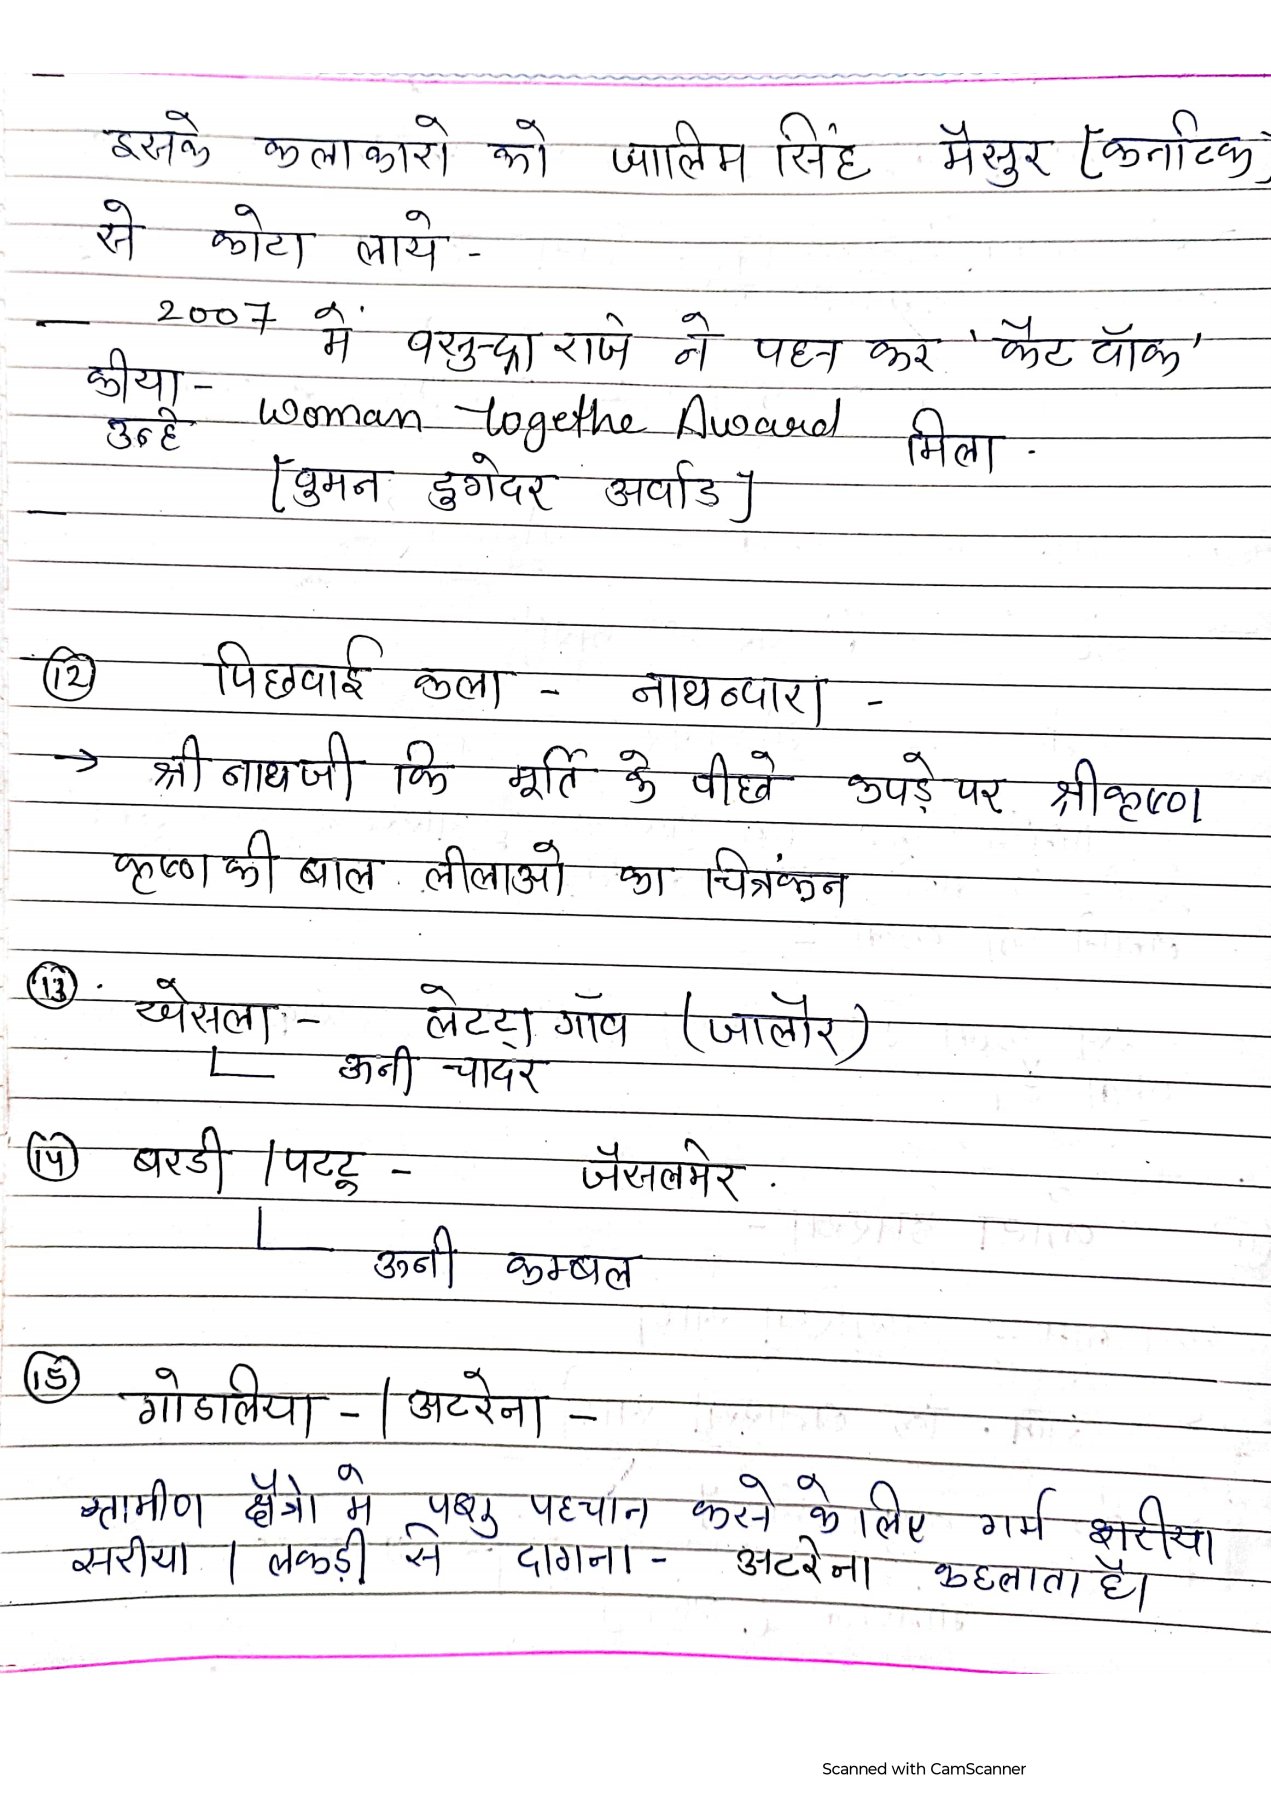 इसके कलाकारो को जालिम सिंह मैसुर [कर्नाटिक]
से कोटा लाये -
2007 में वसुन्द्रा राजे ने पहन कर 'कैट वॉक'
कीया -
उन्हे Woman togethe Award मिला .
[वुमन टुगेदर अर्वाड]
(12) पिछवाई कला - नाथव्दारा -
→ श्री नाथजी कि मूर्ति के पीछे कपड़े पर श्रीकृष्ण
कृष्ण की बाल लीलाओ का चित्रकंन
(13) खेसला :- लेटटा गॉव (जालौर)
ऊनी चादर
(14) बरडी / पटटू - जैसलमेर .
ऊनी कम्बल
(15) गोडालिया - / अटरेना -
ग्रामीण क्षैत्रो मे पशु पहचान करने के लिए गर्म शरीया
सरीया / लकड़ी से दागना - अटरेना कहलाता है।
Scanned with CamScanner